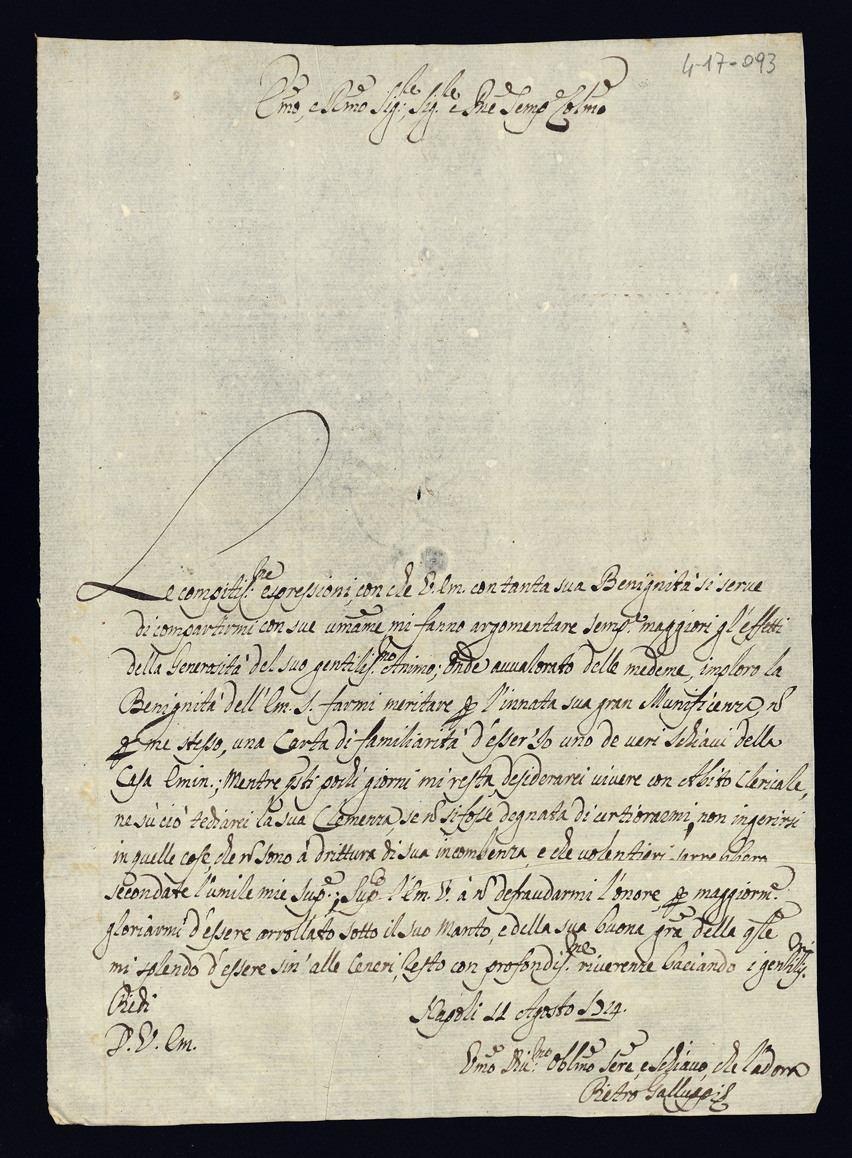 4-17-093
Emo, e Rmo Sig:re, Sig.re e Pne Semp.e Colmo
Le compitis.me espressioni, con che V. Em. con tanta sua Benignità si serve
di compartirmi con sue mi fanno argomentare semp.e maggiori gl'effetti
della Generosità del suo gentilis.mo Animo; Onde avvalorato delle medeme, imploro la
Benignità dell'Em. S. farmi meritare p l'innata sua gran Munificenza, nō
p me stesso, una Carta di familiarità d'esser'Io uno de veri schiavi della
Casa Emin.; Mentre qsti pochi giorni mi resta, desiderarei vivere con Abito Clericale,
ne sù ciò tediarei la sua Clemenza, se nō si fosse degnata di certiorarmi, non ingerirsi
in quelle cose, che nō sono à drittura di sua incombenza, e che volentieri
secondate l'umile mie sup.e; Sup.co l'Em. V. à nō defraudarmi l'onore, p maggiorm.e
gloriarmi d'essere arrollato sotto il suo Manto, e della sua buona grā della qsle
mi splendo d'essere sin' alle Ceneri, Resto con profondis.me riverenze baciando i gentilis.mi
Piedi
D. V. Em.
Napoli 11 Agosto 1724.
Vmo Obblmo Sere, e schiavo, che l'adora
Pietro Galluppi